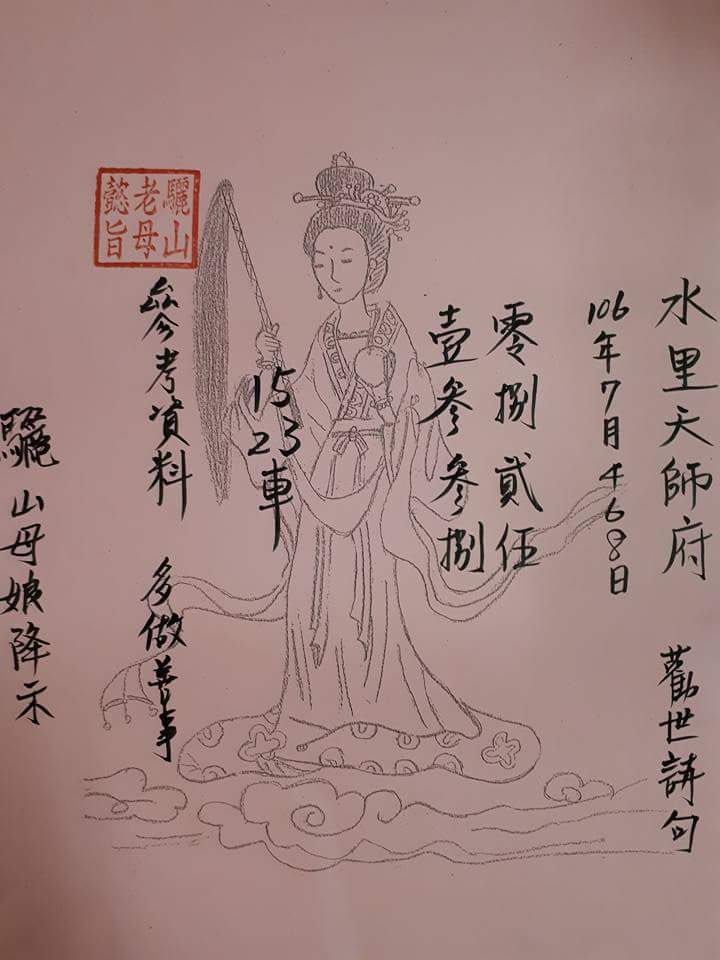 水里天師府 勸世詩句
106年7月4 6 8日
零捌貳伍
壹參參捌
15
23車
驪山
老母
懿旨
參考資料 多做善事
驪山母娘降示